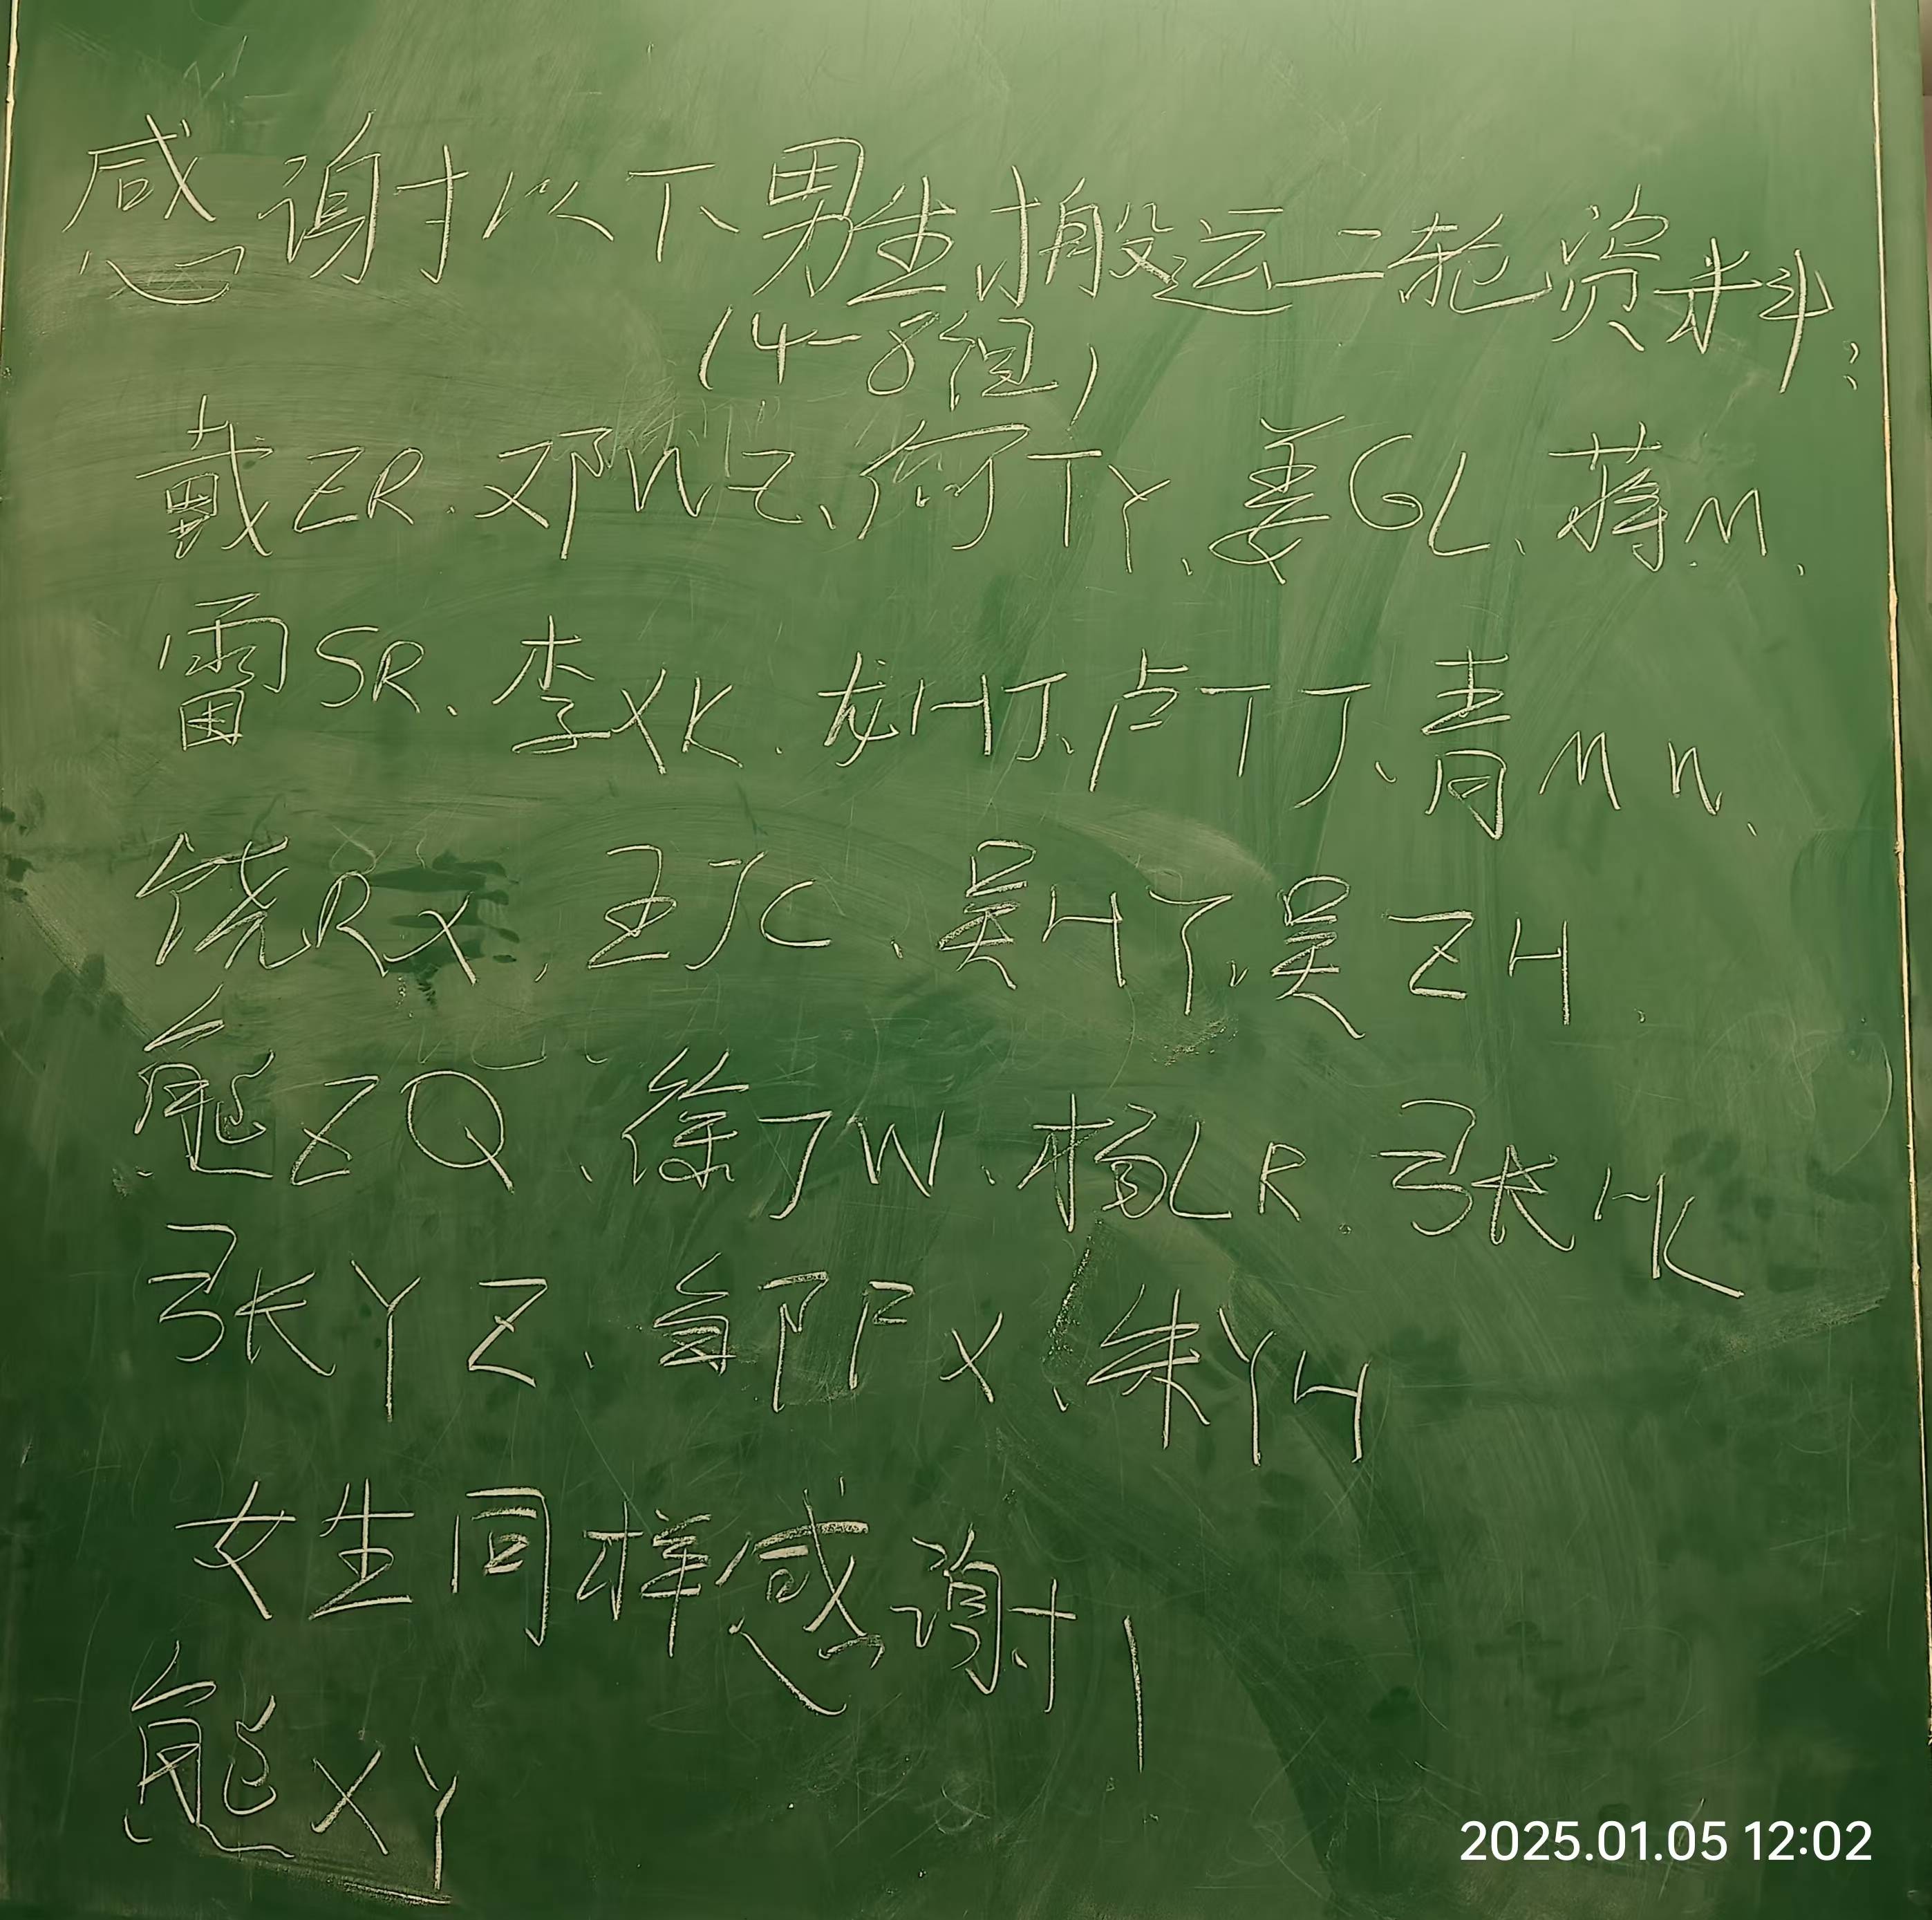 感谢以下男生搬运二轮资料:
(4-8组)
戴ZR、邓WZ、何TY、姜GL、蒋M、
雷SR、李XK、龙HJ、卢TJ、青MN、
饶RX、王JC、吴HY、吴ZH、
熊ZQ、徐JW、杨LR、张HK
张YZ、邹FX、朱YH
女生同样感谢!
熊XY
2025.01.05 12:02